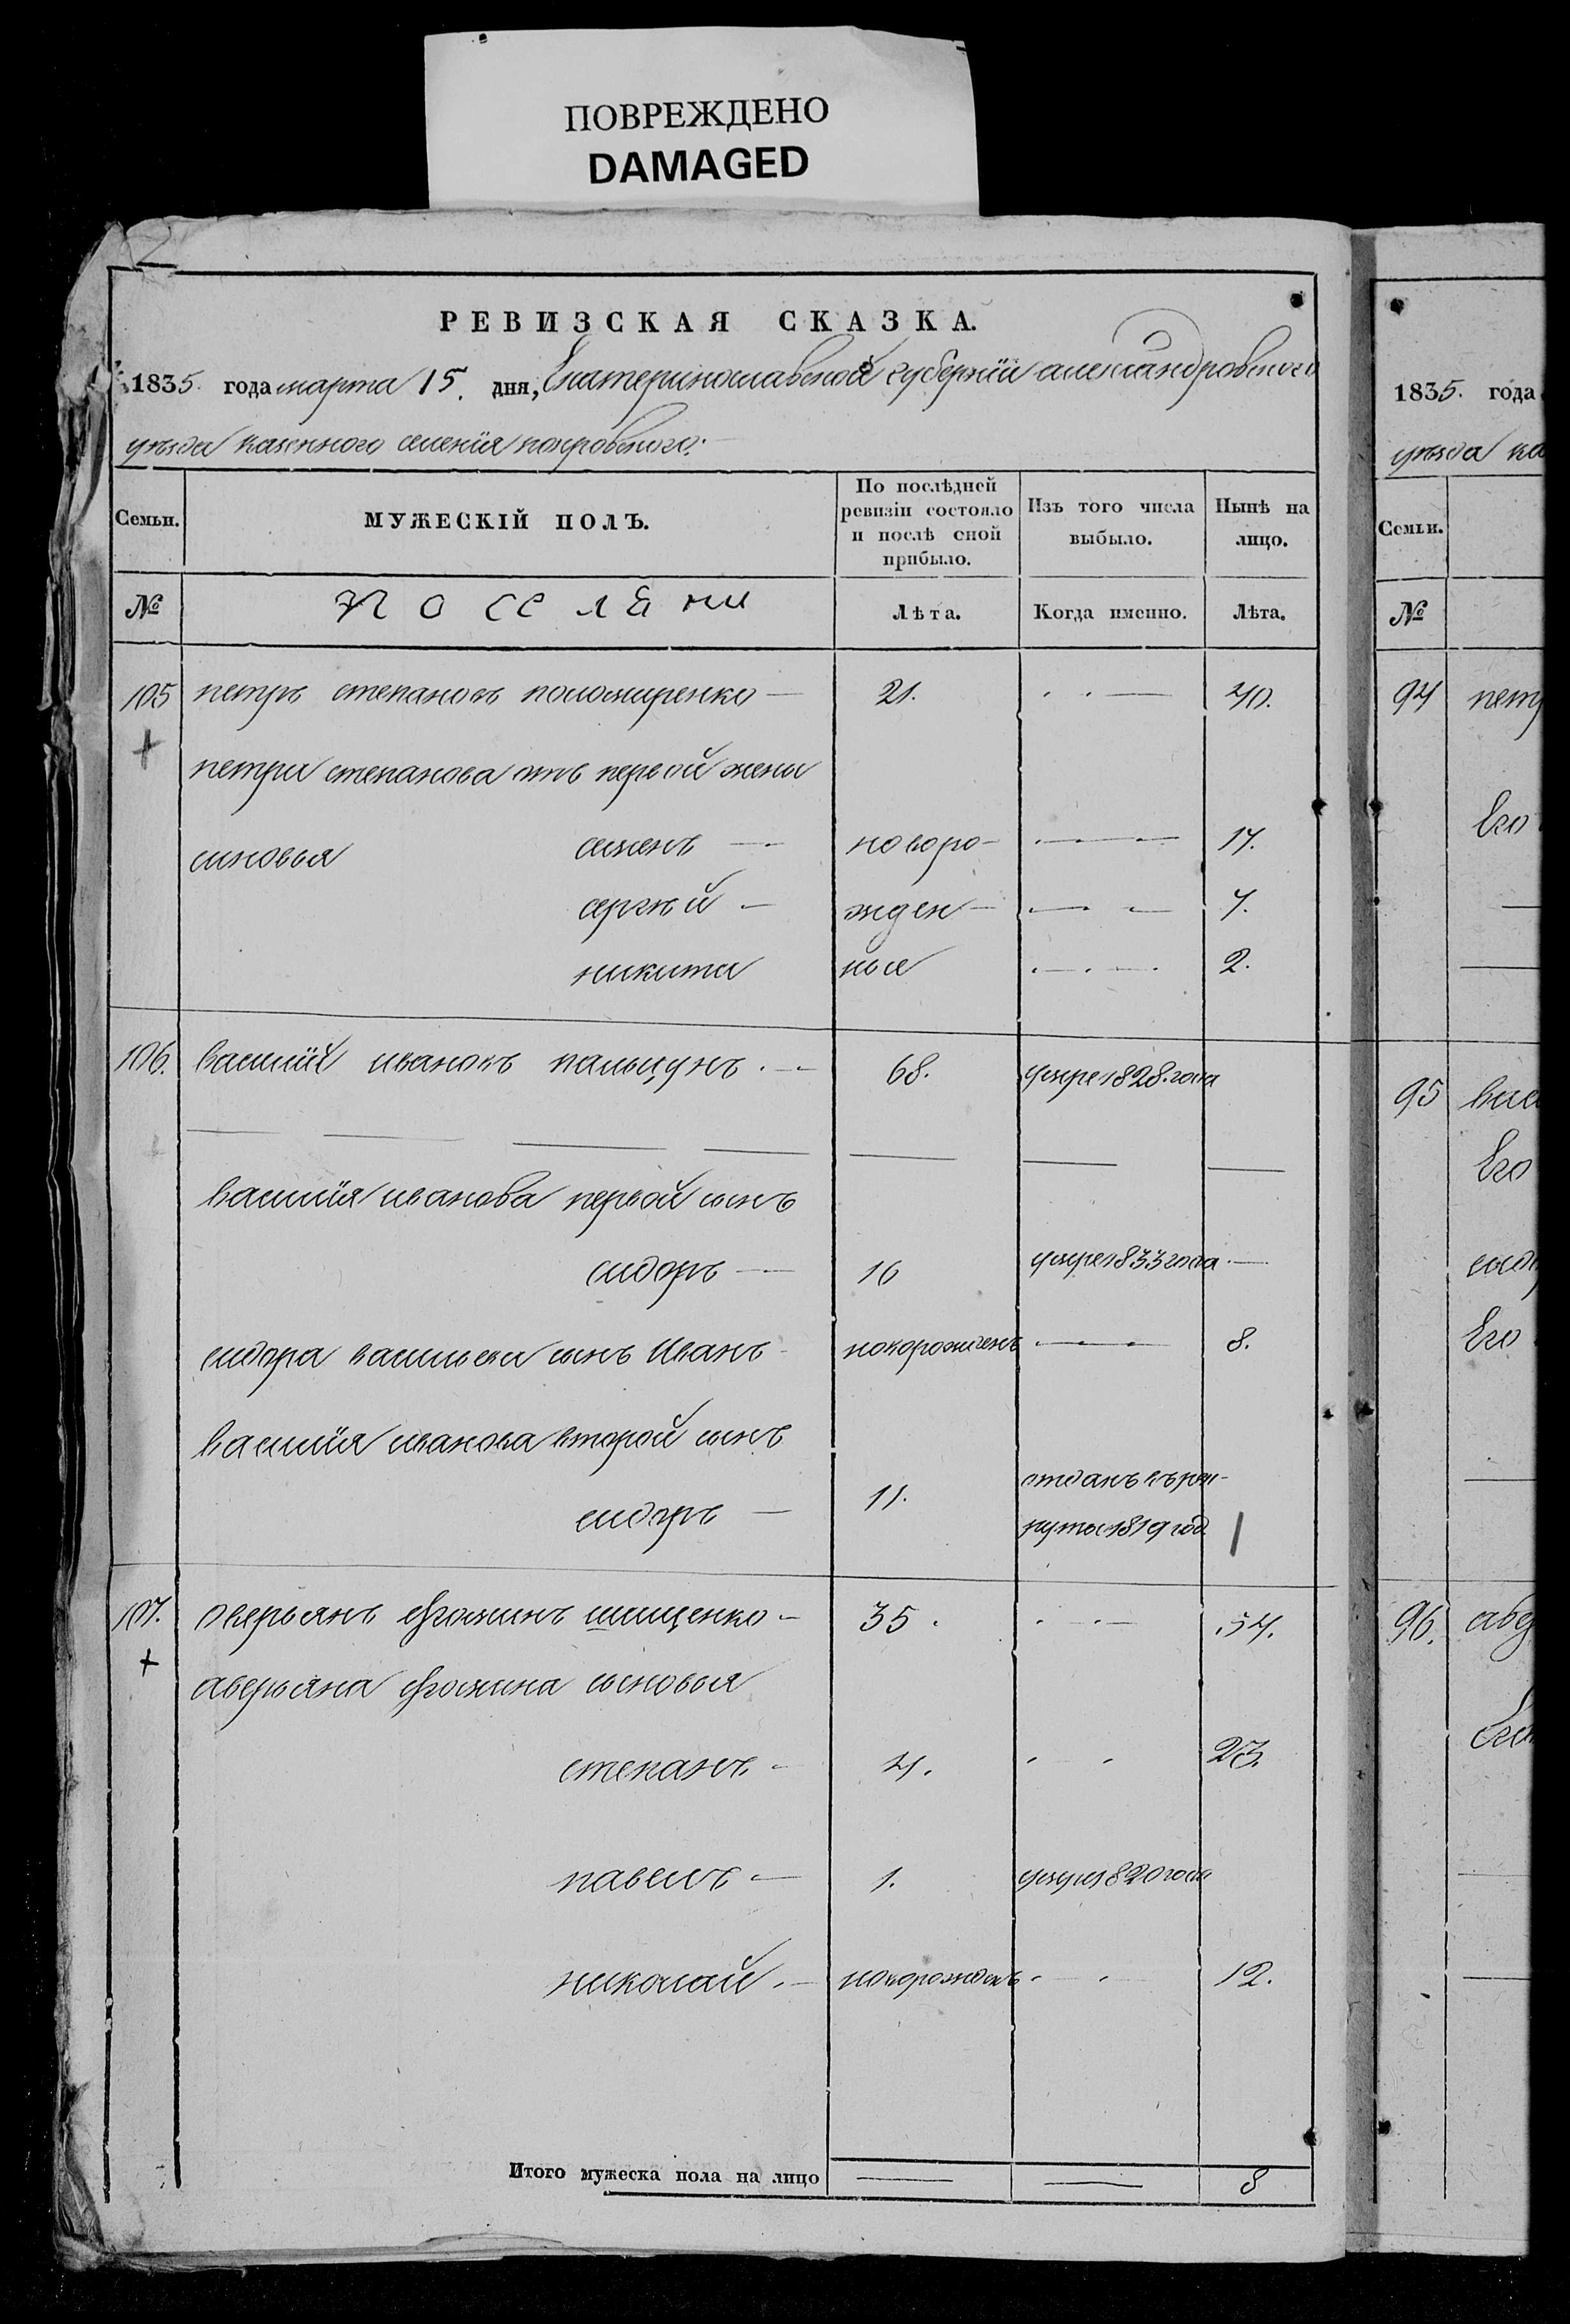 ПОВРЕЖДЕНО
DAMAGED
РЕВИЗСКАЯ СКАЗКА.
1835. года марта 15. дня, Екатеринославской губерніи александровского
уезда казенного селенія покровского.
Семьи.
МУЖЕСКІЙ ПОЛЪ.
По послѣдней ревизіи состояло и послѣ оной прибыло.
Изъ того числа выбыло.
Нынѣ на лицо.
№
поселяни
Лѣта.
Когда именно.
Лѣта.
105 петръ степановъ 21. 40.
петра степанова отъ первой жены
синовья семенъ новоро- 17.
сергѣй жден- 7.
никита ные 2.
106. василій ивановъ пальцунъ 68. умре 1828. года
василія иванова первой сынъ
сидоръ 16 умре 1833 года
сидора васильева сынъ Иванъ новорожденъ 8.
василія иванова второй сынъ
сидоръ 11. отданъ въ рек-
руты 1819 год.
107. оверьянъ фоминъ 35. 54.
аверьяна фомина сыновья
степанъ 4. 23.
павелъ 1. умре 1820 года
николай новорожденъ 12.
Итого мужеска пола на лицо 8
1835. года
уезда ка
Семьи.
№
94 петр
Его
95 вас
Его
сидо
Его
96. аве
Его